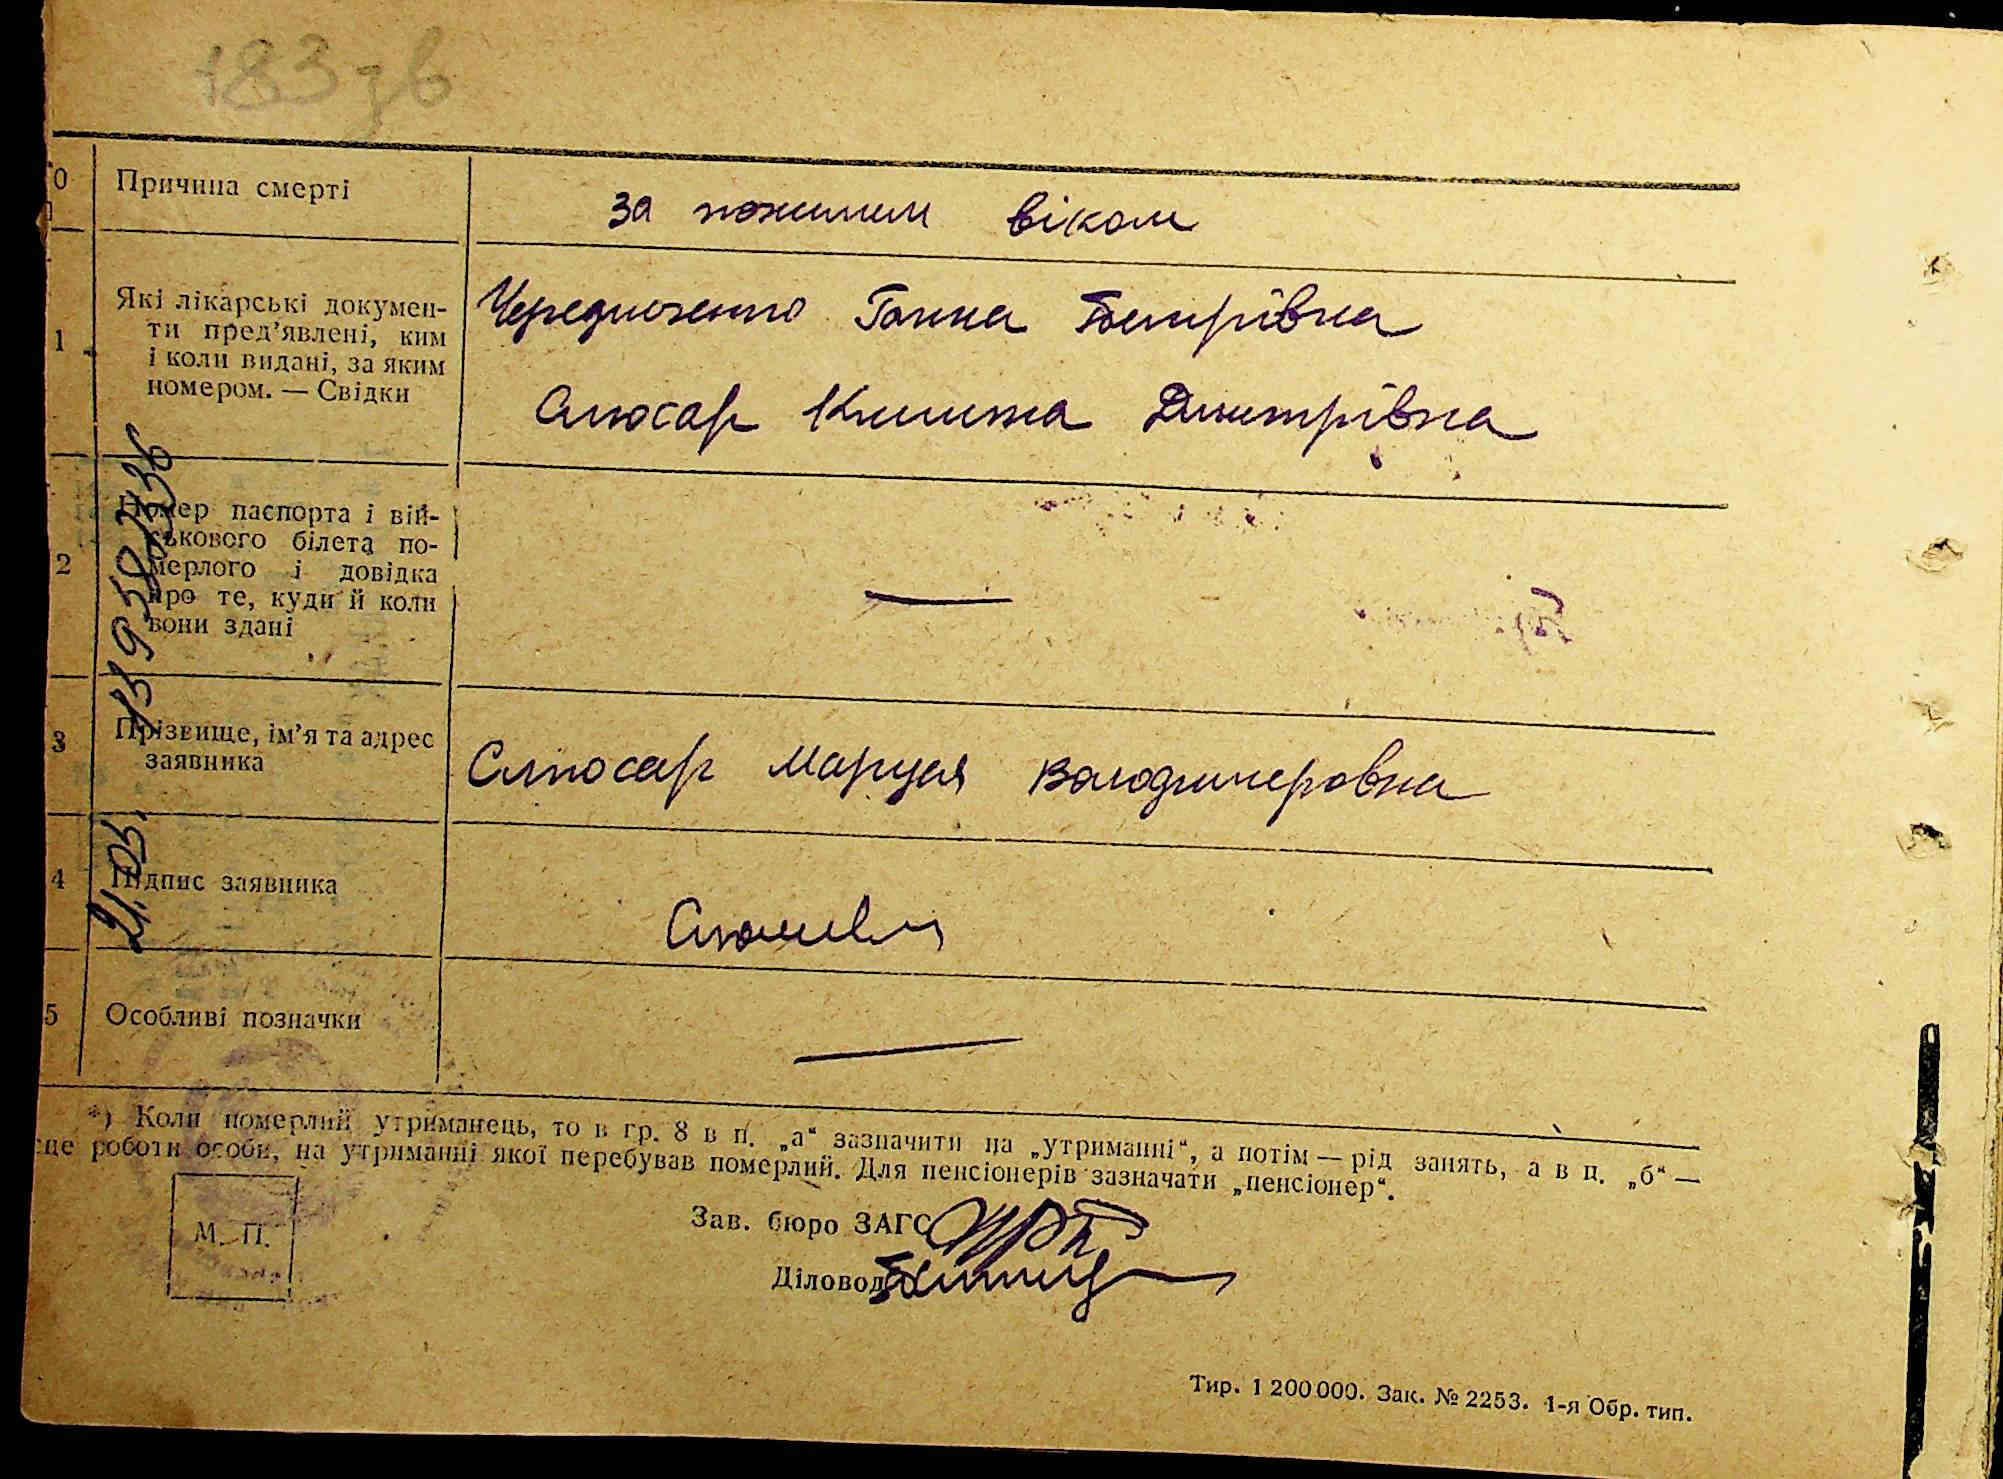 183 зв
0 Причина смерті
за пожилим віком
1 Які лікарські докумен-
ти пред'явлені, ким
і коли видані, за яким
номером. — Свідки
Чередниченко Ганна Петрівна
Слюсар Дмитрівна
2 Номер паспорта і вій-
ськового білета по-
мерлого і довідка
про те, куди й коли
вони здані
—
3 Прізвище, ім'я та адрес
заявника
Слюсар Маруся Володимеровна
4 Підпис заявника
5 Особливі позначки
—
*) Коли померлий утриманець, то в гр. 8 в п. „а“ зазначити на „утриманні“, а потім — рід занять, а в п. „б“ —
сце роботи особи, на утриманні якої перебував померлий. Для пенсіонерів зазначати „пенсіонер“.
М. П.
Зав. бюро ЗАГС
Діловод
Тир. 1 200 000. Зак. № 2253. 1-я Обр. тип.